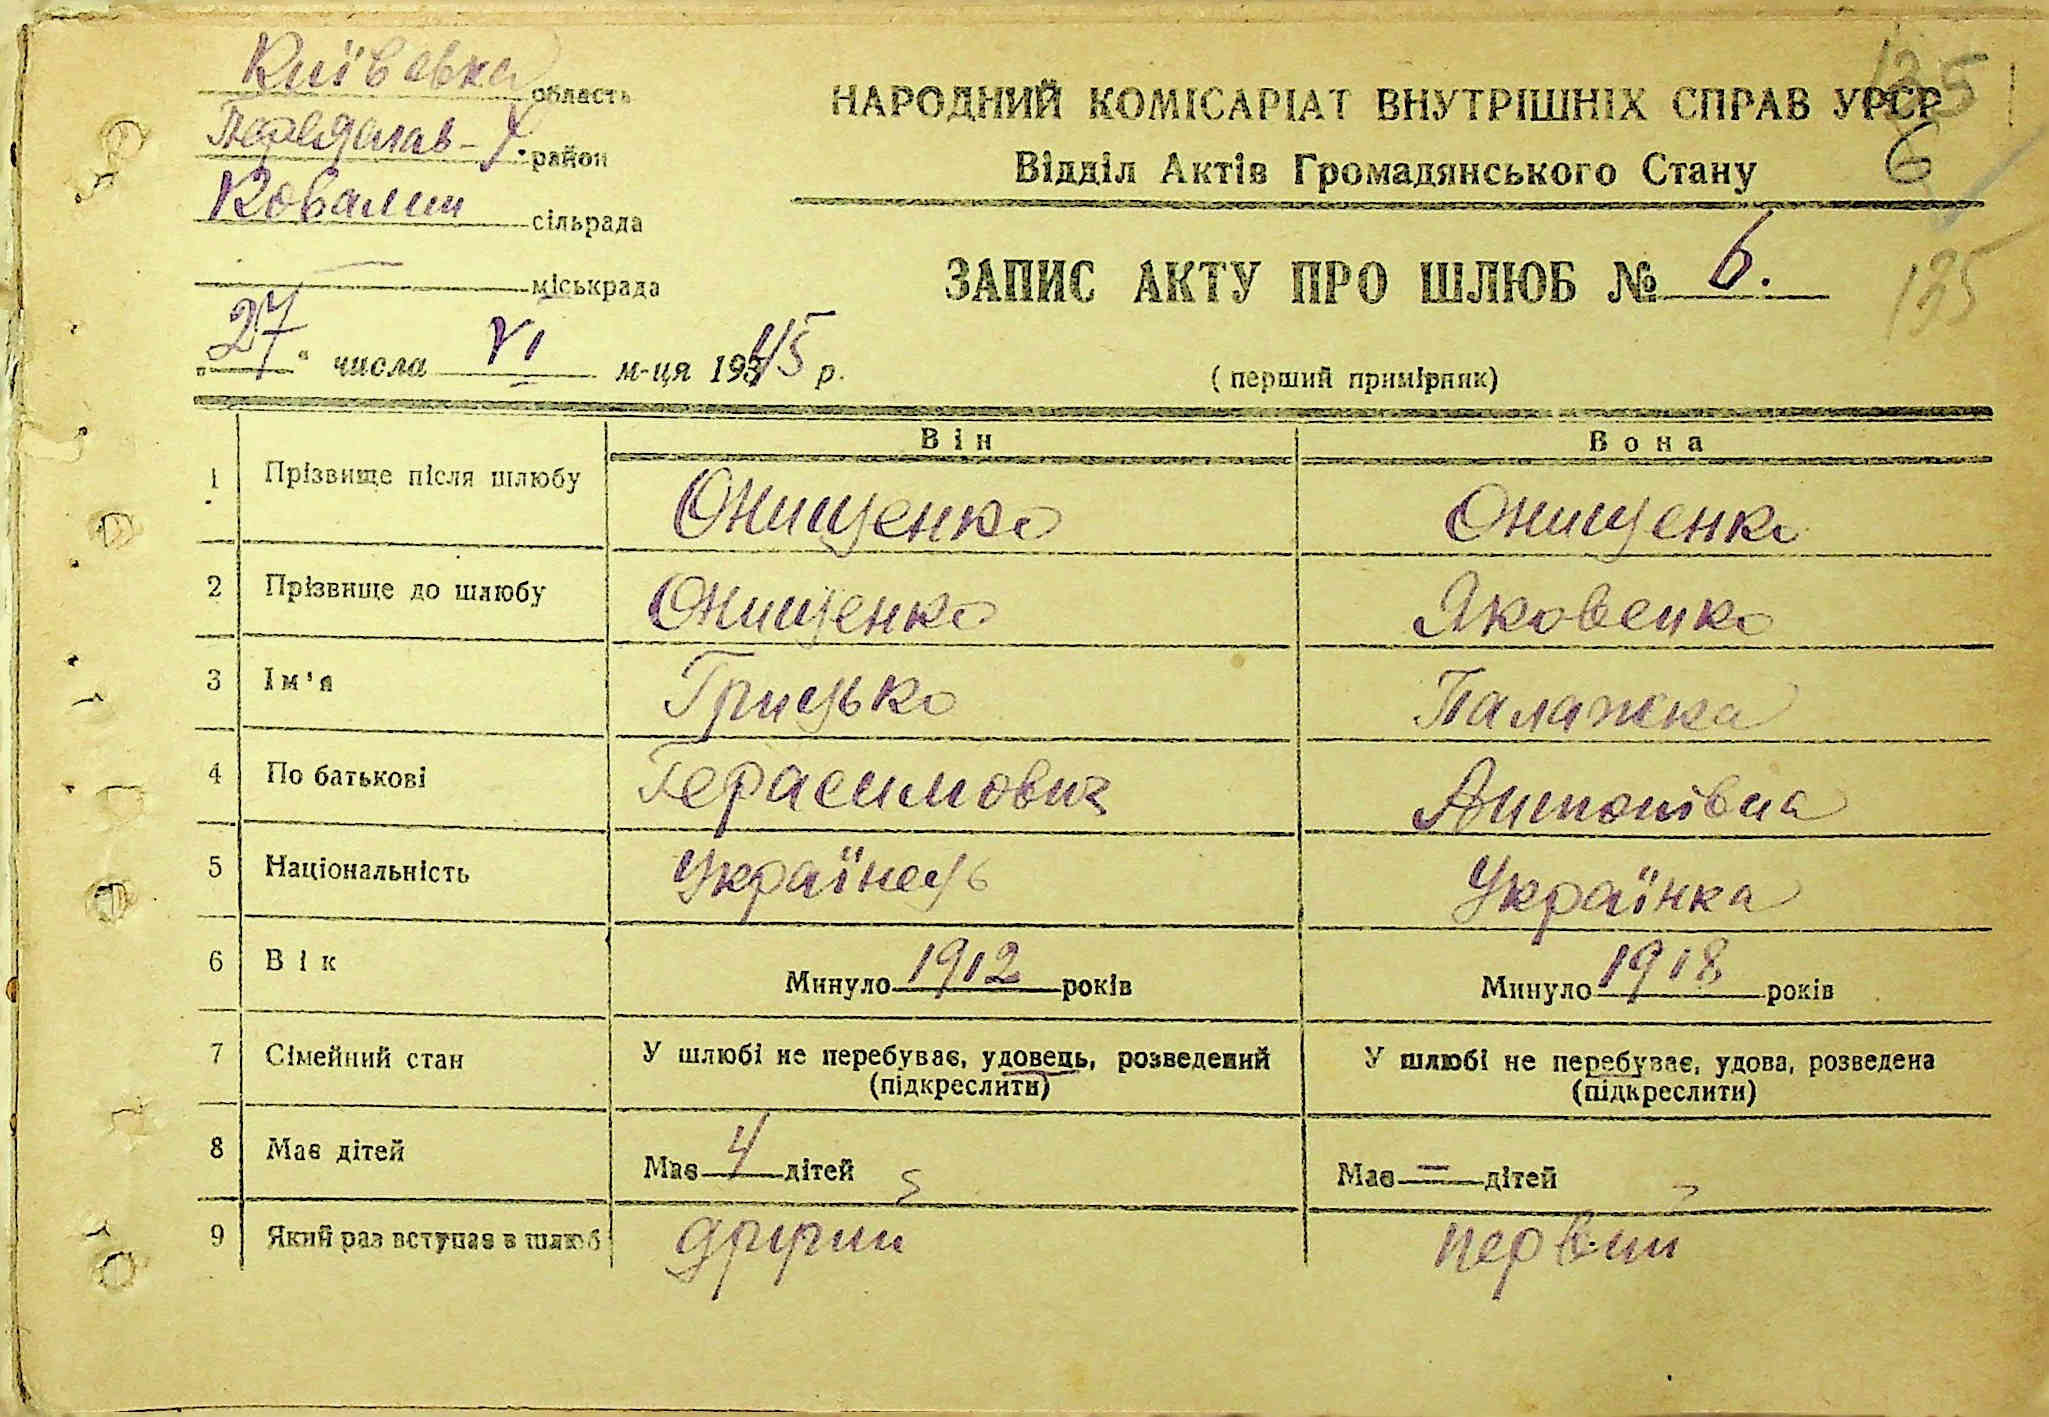 Київська область
Переяслав-Х. район
Ковалин сільрада
— міськрада
„27“ числа VI м-ця 1945 р.
135
НАРОДНИЙ КОМІСАРІАТ ВНУТРІШНІХ СПРАВ УРСР
6
Відділ Актів Громадянського Стану
ЗАПИС АКТУ ПРО ШЛЮБ № 6.
135
(перший примірник)
Він Вона
1 Прізвище після шлюбу Онищенко Онищенко
2 Прізвище до шлюбу Онищенко Яковенко
3 Ім'я Грицько Палажка
4 По батькові Герасимович Антонівна
5 Національність Українець Українка
6 Вік Минуло 1912 років Минуло 1918 років
7 Сімейний стан У шлюбі не перебуває, удовець, розведений У шлюбі не перебуває, удова, розведена
(підкреслити) (підкреслити)
8 Має дітей Має 4 дітей Має — дітей
9 Який раз вступає в шлюб другий первий